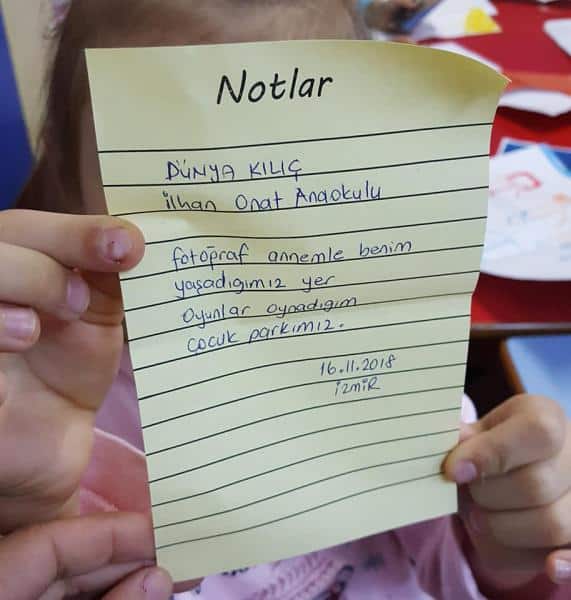 Notlar
DÜNYA KILIÇ
ilhan Onat Anaokulu
fotoğraf annemle benim
yaşadığımız yer
Oyunlar oynadığım
çocuk parkımız.
16.11.2018
İZMİR